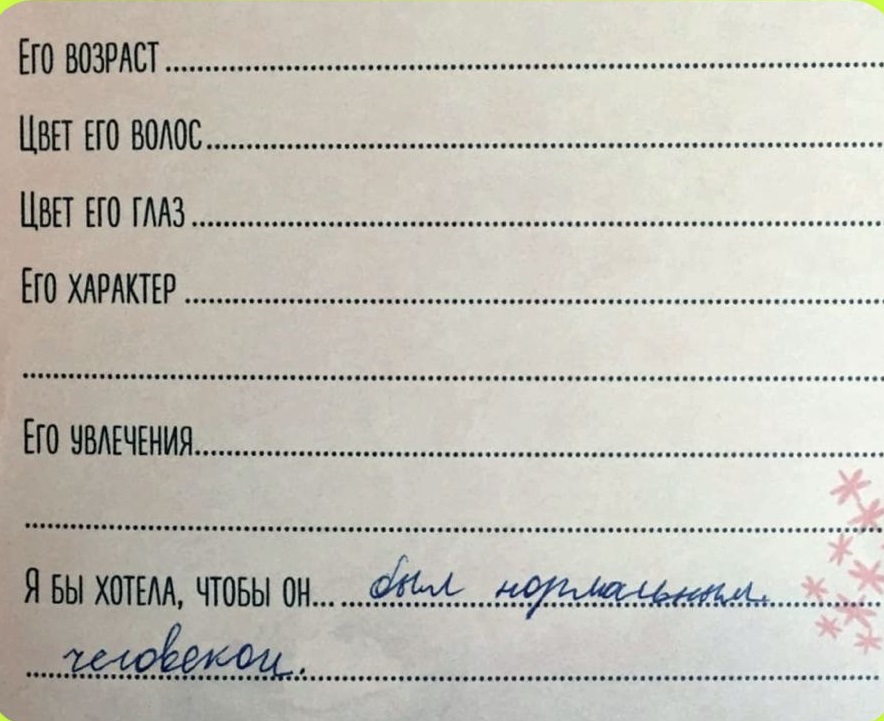 Его возраст
Цвет его волос
Цвет его глаз
Его характер
Его увлечения
Я бы хотела, чтобы он... был нормальным
человеком.